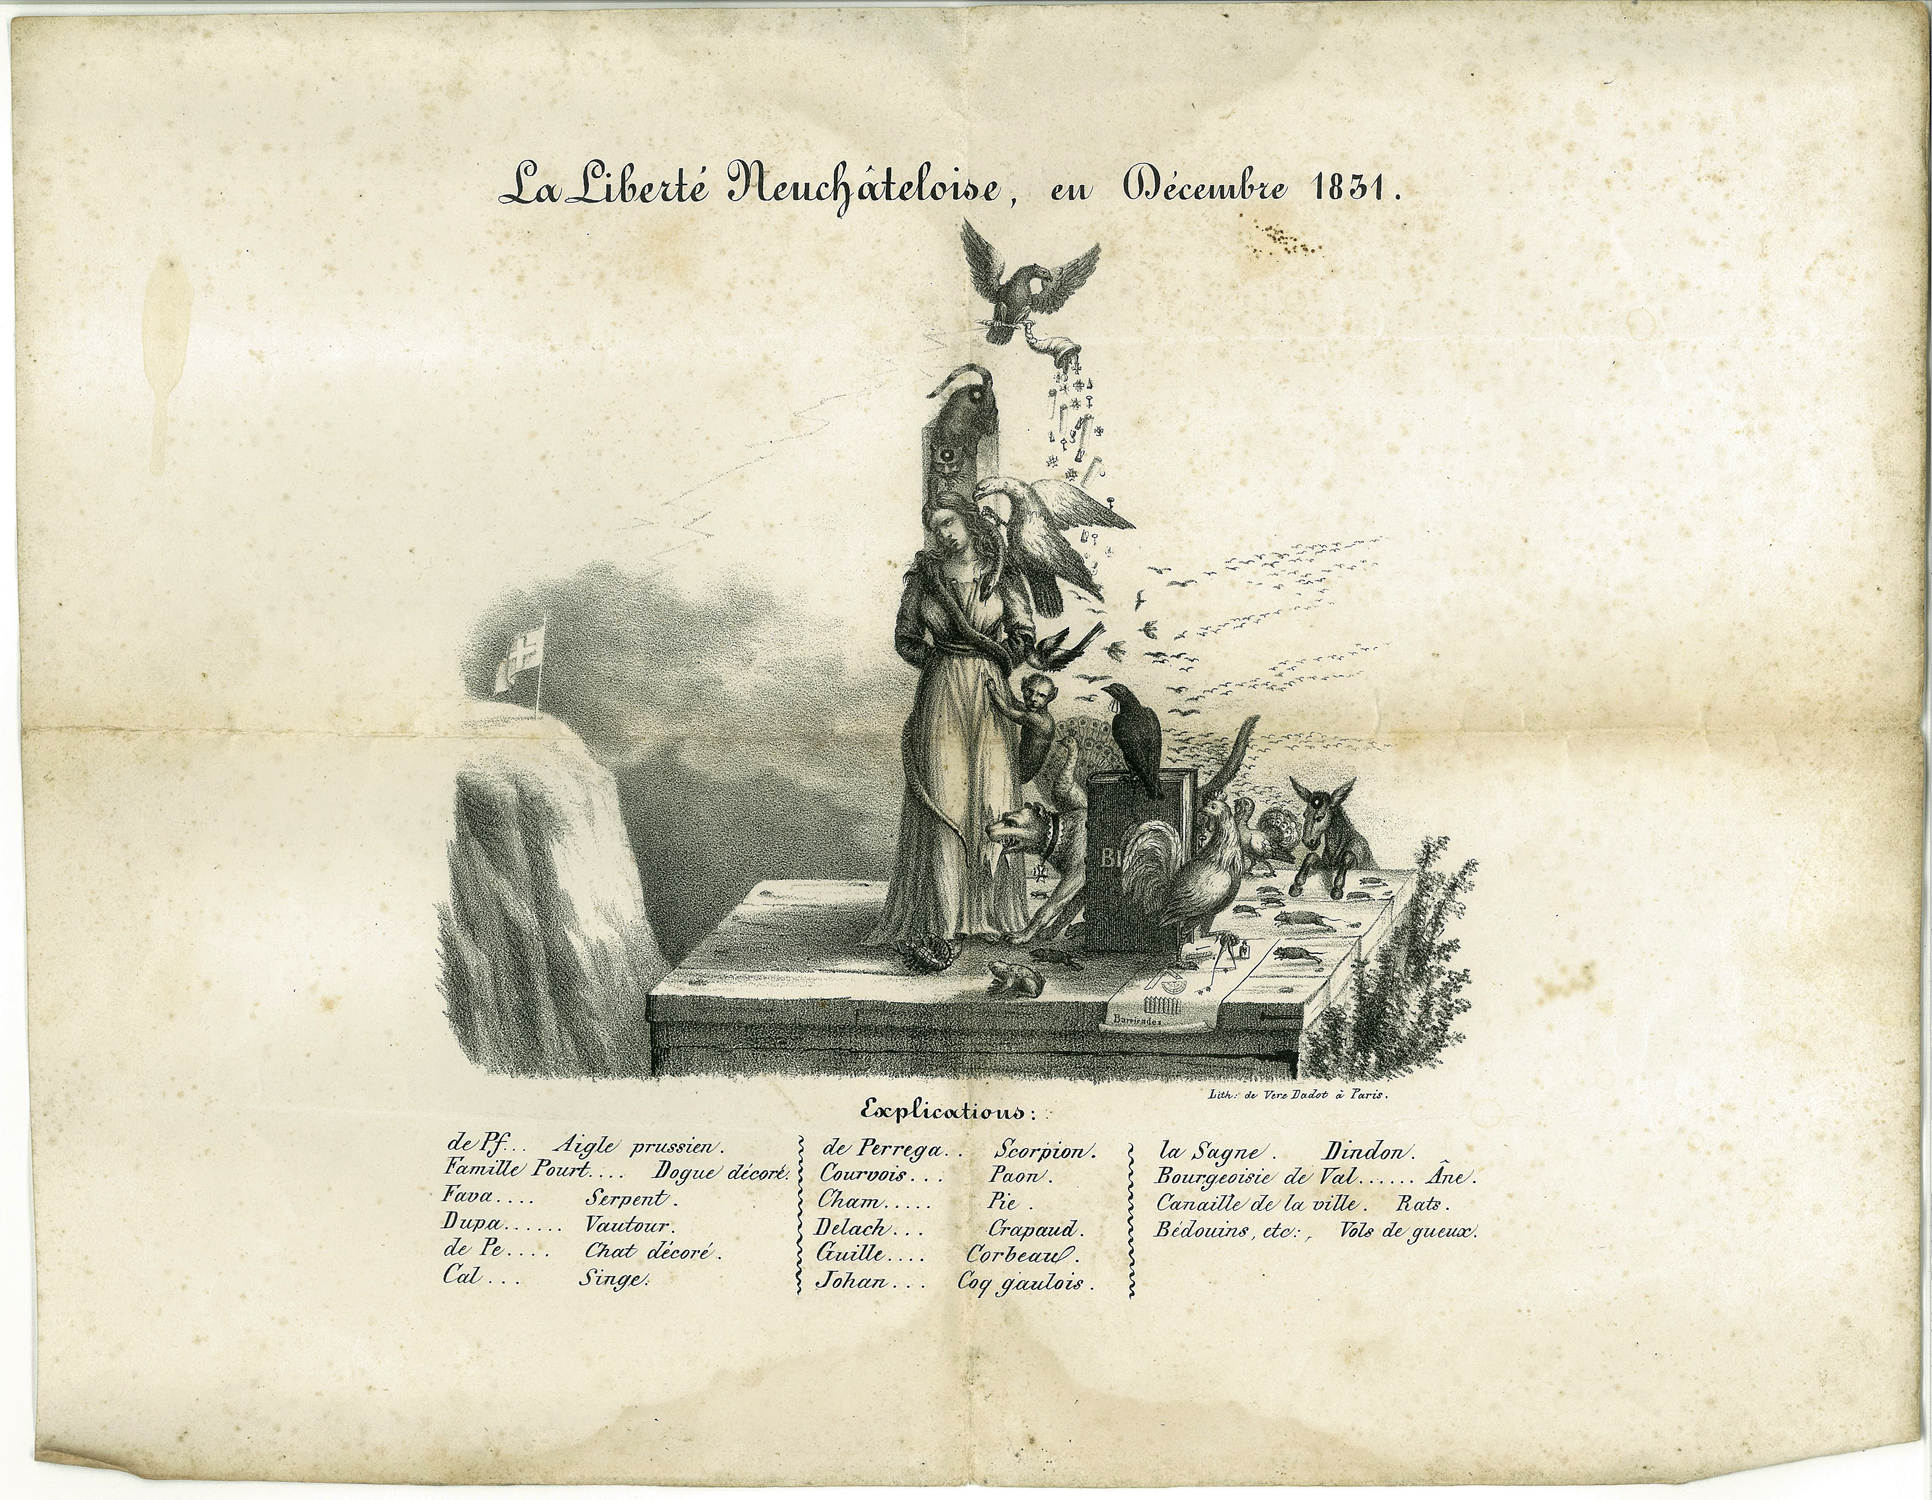 La Liberté Neuchâteloise, en Décembre 1831.
BI
Barricades
Lith: de Vere Dadot à Paris.
Explications:
de Pf... Aigle prussien.
Famille Pourt.... Dogue décoré.
Fava.... Serpent.
Dupa...... Vautour.
de Pe.... Chat décoré.
Cal... Singe.
de Perrega.. Scorpion.
Courvois... Paon.
Cham..... Pie.
Delach... Crapaud.
Guille.... Corbeau.
Johan... Coq gaulois.
la Sagne. Dindon.
Bourgeoisie de Val...... Âne.
Canaille de la ville. Rats.
Bédouins, etc:, Vols de gueux.